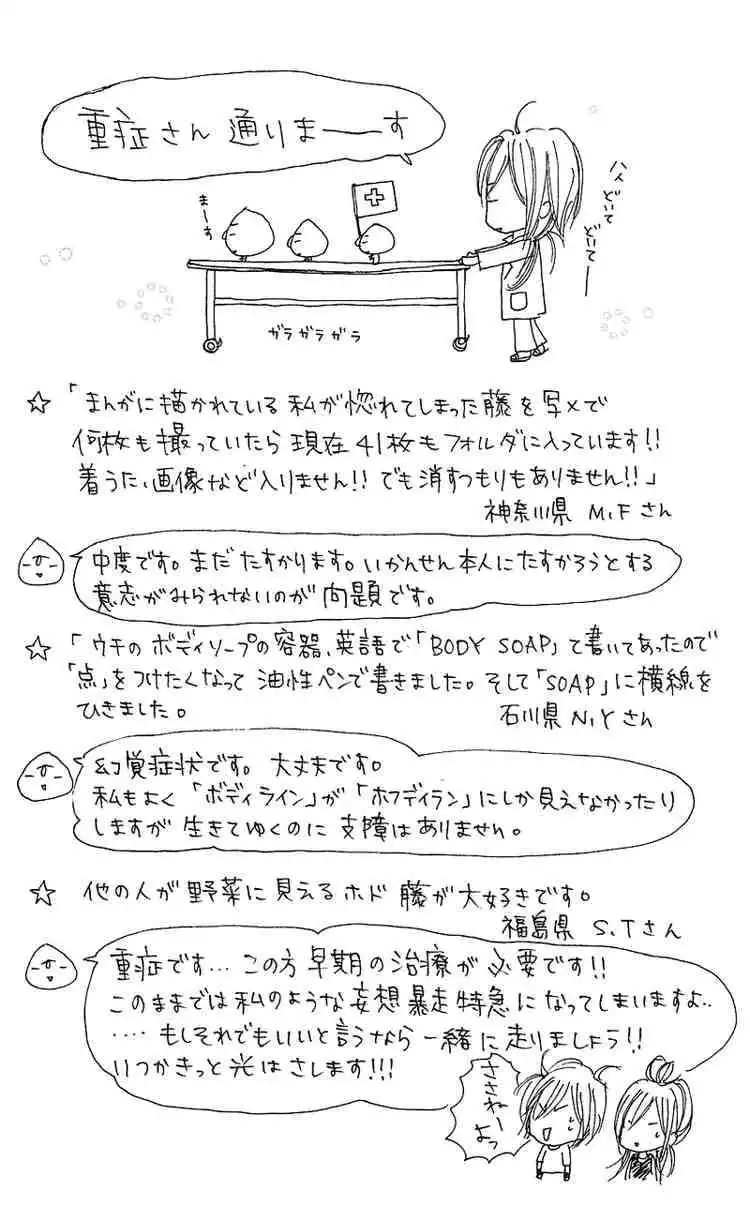 重症さん 通りまーーす
まーす
ハイ どいて
どいてー
ガラガラガラ
☆ 「まんがに描かれている 私が惚れてしまった藤を写メで
何枚も撮っていたら 現在 41枚もフォルダに入っています!!
着うた、画像など入りません!! でも消すつもりもありません!!」
神奈川県 M.Fさん
中度です。まだたすかります。いかんせん本人にたすかろうとする
意志がみられないのが 問題です。
☆ 「ウチの ボディソープの容器、英語で「BODY SOAP」て書いてあったので
「点」をつけたくなって 油性ペンで書きました。そして「SOAP」に横線を
ひきました。
石川県 N.Yさん
幻覚症状です。大丈夫です。
私もよく 「ボディライン」が「ホフディラン」にしか見えなかったり
しますが 生きてゆくのに 支障はありません。
☆ 他の人が野菜に見えるホド 藤が大好きです。
福島県 S.Tさん
重症です… この方 早期の治療が 必要です!!
このままでは私のような妄想暴走特急になってしまいますよ‥
‥‥ もしそれでもいいと言うなら 一緒に走りましょう!!
いつかきっと光はさします!!!
ささねーよっ